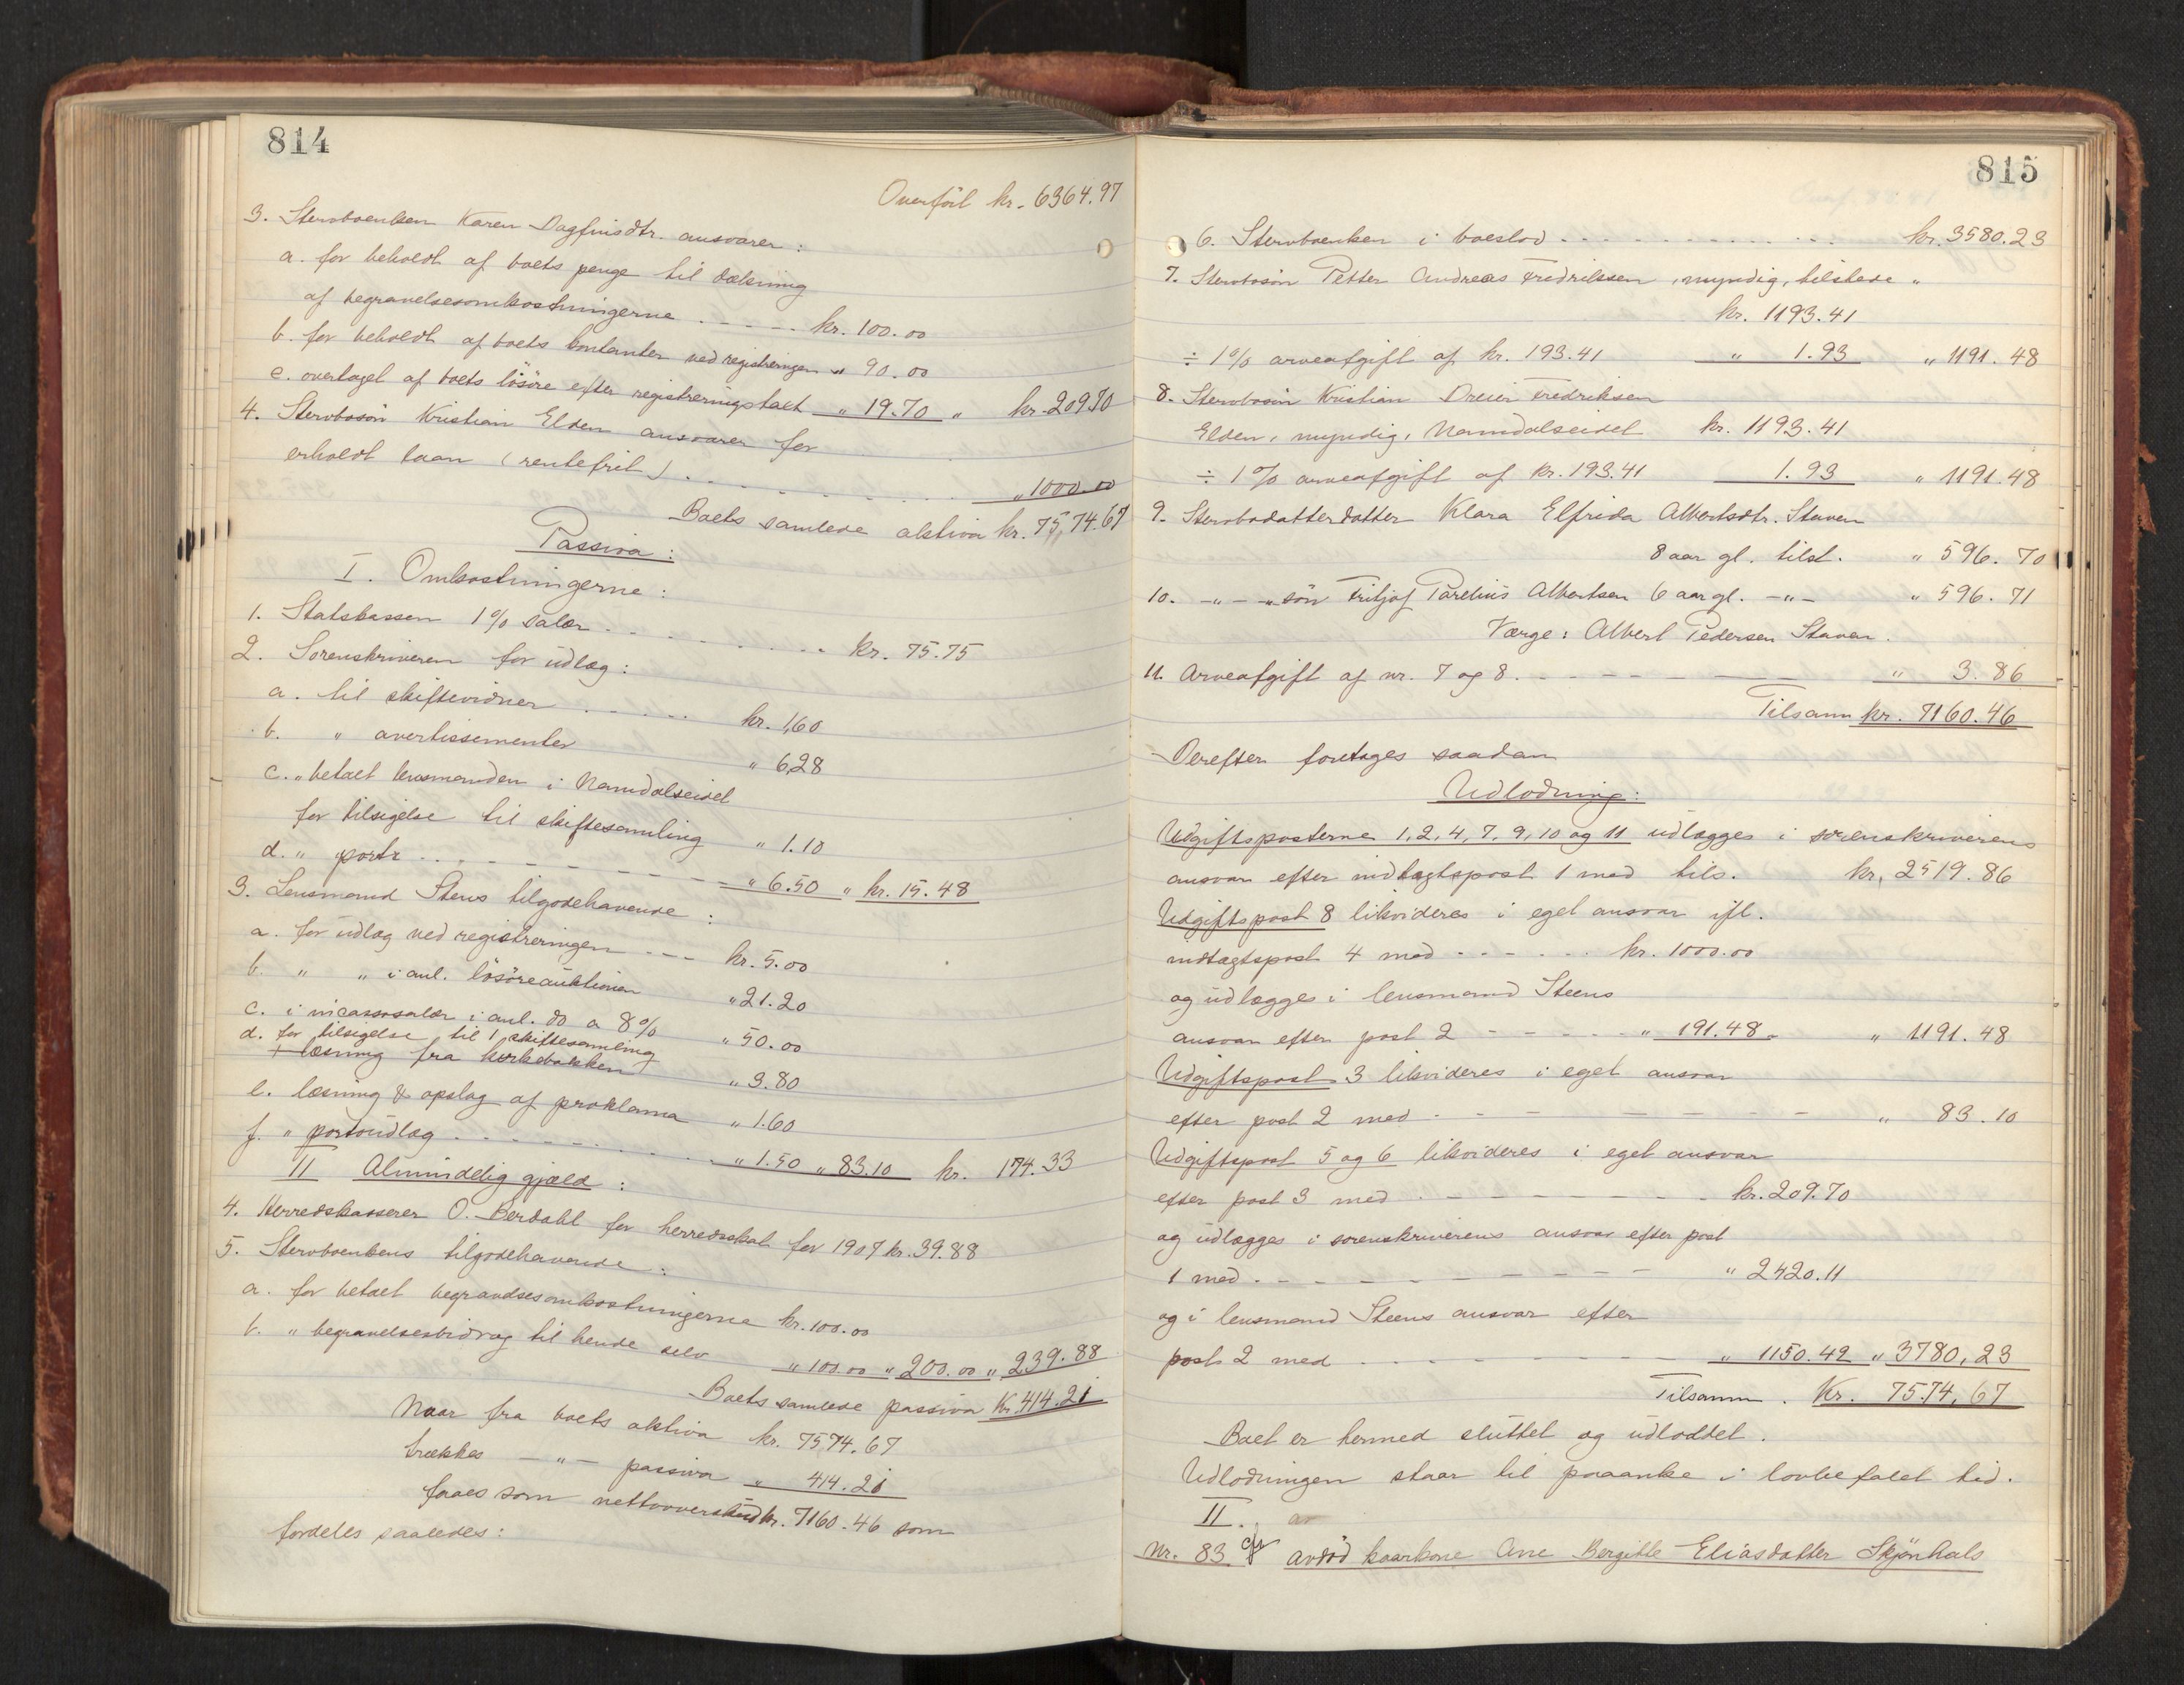 814
Overført kr. 6364.97
3. Stervboenken Karen Dagfinsdtr. ansvarer:
a. for beholdt af boets penge til dækning
af begravelsesomkostningerne - - - - - kr. 100.00
b. for beholdt af boets kontanter ved registreringen " 90.00
c. overtaget af boets løsøre efter registreringstaxt " 19.70 " kr. 209.70
4. Stervbosøn Kristian Elden ansvarer for
erholdt laan (rentefrit) . - - - - - - - - " 1000.00
Boets samlede aktiva kr. 7574.67
Passiva:
I. Omkostningerne:
1. Statskassen 1% salær - - - - - - - - kr. 75.75
2. Sorenskriveren for udlæg:
a. til skiftevidner - - - - - kr. 1,60
b. " avertissementer " 6,28
c. " betalt lensmanden i Namdalseidet
for tilsigelse til skiftesamling " 1.10
d. " porto - - - - - - - - " 6.50 " kr. 15.48
3. Lensmand Steens tilgodehavende:
a. for udlæg ved registreringen - - - kr. 5.00
b. " " i anl. løsøreauktionen " 21.20
c. i incassosalær i anl. do a 8% " 50.00
d. for tilsigelse til 1 skiftesamling
+ læsning fra kirkebakken " 3.80
e. læsning & opslag af proklama " 1.60
f. " portoudlæg - - - - - - - " 1.50 " 83.10 kr. 174.33
II Almindelig gjæld:
4. Herredskasserer O. Berdahl for herredsskat for 1907 kr. 39.88
5. Stervboenkens tilgodehavende:
a. for betalt begravelsesomkostningerne kr. 100.00
b. " begravelsesbidrag til hende selv " 100.00 " 200.00 " 239.88
Boets samlede passiva Kr. 414.21
Naar fra boets aktiva kr. 7574.67
trækkes - " - passiva " 414.21
faaes som nettooverskud kr. 7160.46 som
fordeles saaledes:
815
6. Stervboenken i boeslod - - - - - - - - - - - - kr. 3580.23
7. Stervbosøn Petter Andreas Fredriksen, myndig, tilstede "
kr. 1193.41
÷ 1% arveafgift af kr. 193.41 " 1.93 " 1191.48
8. Stervbosøn Kristian Dreier Fredriksen
Elden, myndig, Namdalseidet kr. 1193.41
÷ 1% arveafgift af kr. 193.41 1.93 " 1191.48
9. Stervbodatterdatter Klara Elfrida Albertsdtr. Staven
8 aar gl. tilst. " 596.70
10. - " - " søn Fritjof Parelius Albertsen 6 aar gl. - " - " 596.71
Værge: Albert Pedersen Staven.
11. Arveafgift af nr. 7 og 8. - - - - - - - " 3.86
Tilsamm kr. 7160.46
Derefter foretages saadan
Udlodning:
Udgiftsposterne 1, 2, 4, 7, 9, 10 og 11 udlægges i sorenskriverens
ansvar efter indtægtspost 1 med tils. kr. 2519.86
Udgiftspost 8 likvideres i eget ansvar ifl.
indtægtspost 4 med - - - - - - kr. 1000.00
og udlægges i lensmand Steens
ansvar efter post 2 - - - - - " 191.48 " 1191.48
Udgiftspost 3 likvideres i eget ansvar
efter post 2 med - - - - - - - - - " 83.10
Udgiftspost 5 og 6 likvideres i eget ansvar
efter post 3 med - - - - - - - - kr. 209.70
og udlægges i sorenskriverens ansvar efter post
1 med - - - - - - - - - - " 2420.11
og i lensmand Steens ansvar efter
post 2 med - - - - - - - - " 1150.42 " 3780,23
Tilsamm. Kr. 7574,67
Boet er hermed sluttet og udloddet.
Udlodningen staar til paaanke i lovbefalet tid.
II.
Nr. 83 avdød kaarkone Ane Bergitte Eliasdatter Skjønhals